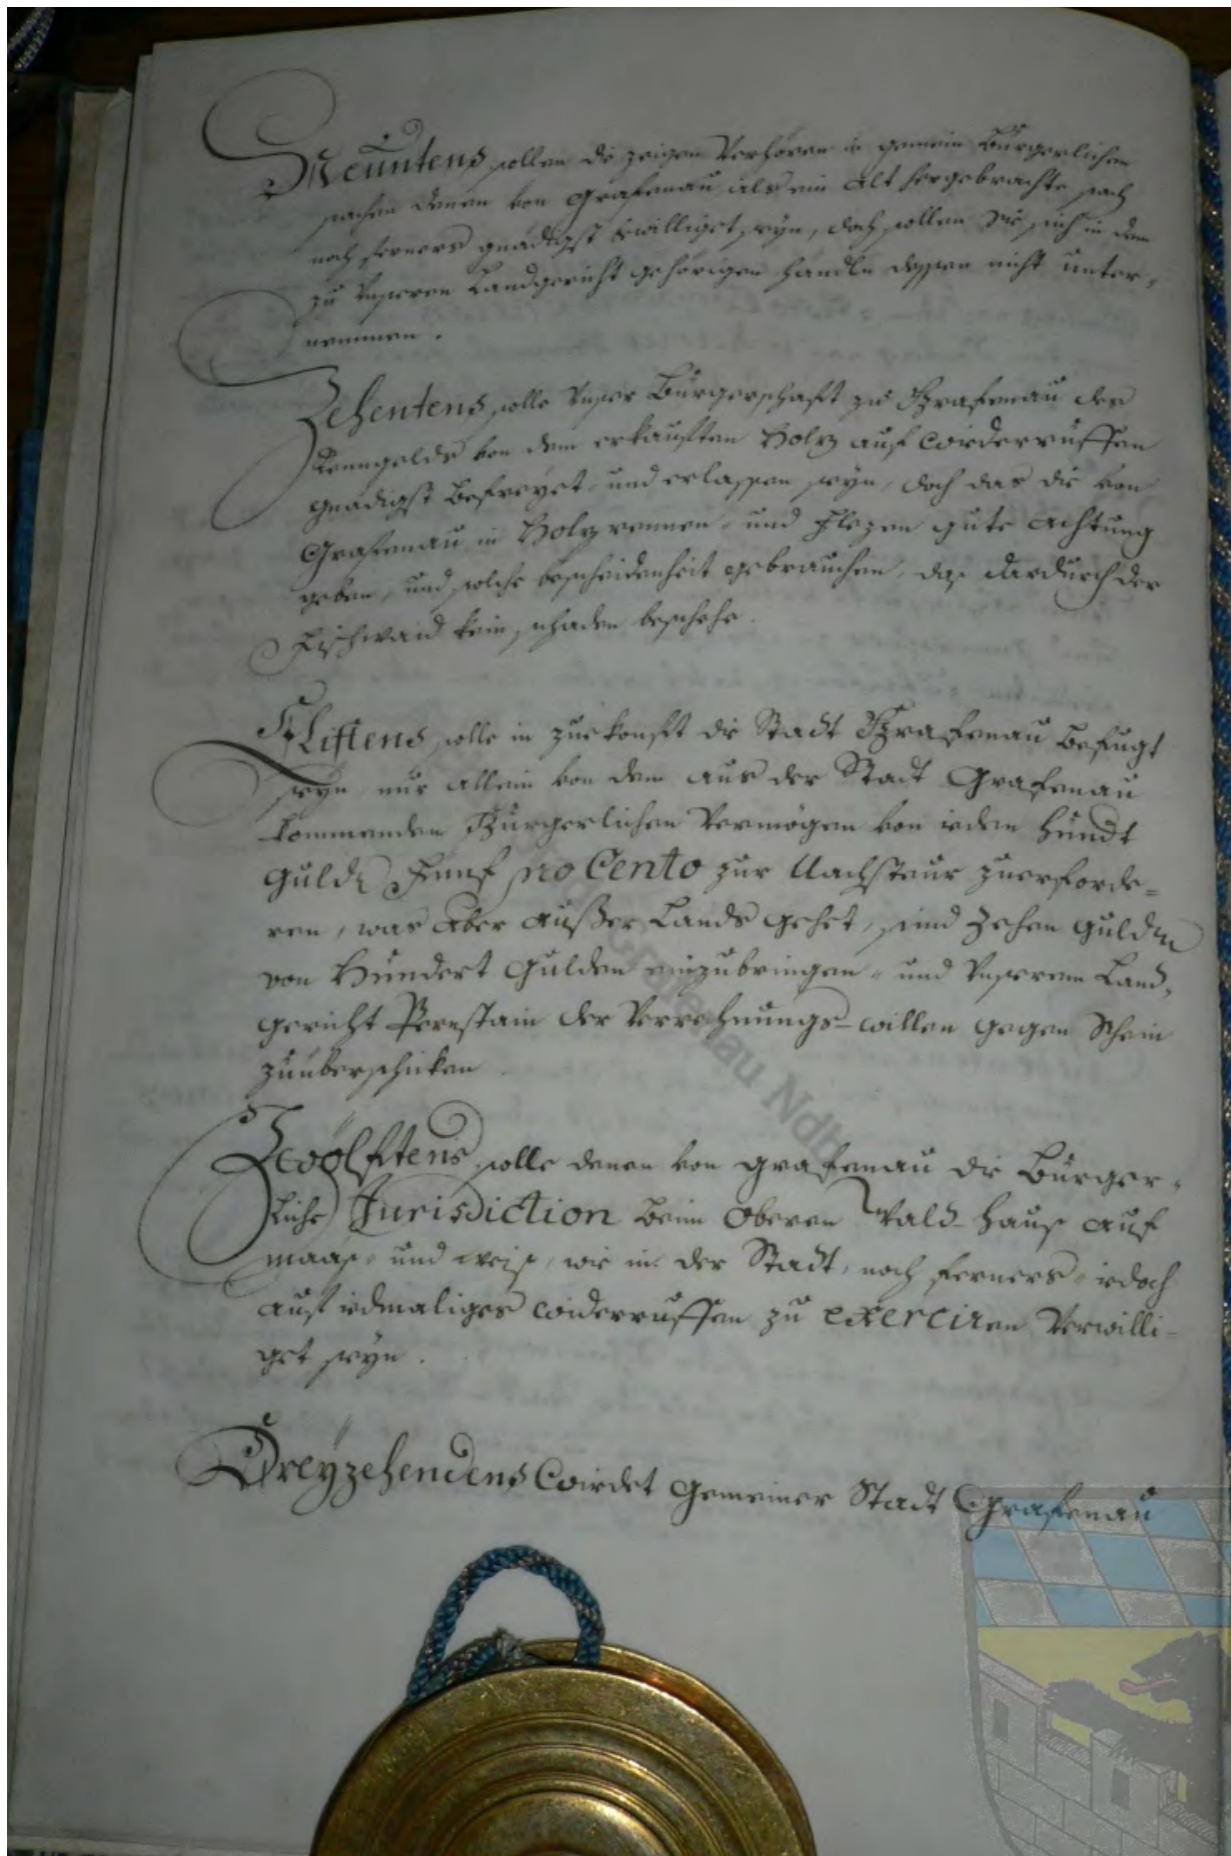 Neuntens sollen die zeigen Verhören in gemein Bürgerlichen
sachen denen von Grafenau als ein alt hergebrachte sach
noch ferners gnädigst bewilliget seyn, doch sollen sie sich in dem
zu Unseren Landgericht gehörigen händln dessen nicht unter„
nemmen.
Zehentens solle Unser Burgerschaft zu Grafenau des
von dem erkaufften Holz auf widerruffen
gnädigst befreyet und erlassen seyn, doch das die von
Grafenau in Holz rennen und Flezen gute achtung
geben, und solche bescheidenheit gebrauchen, das dardurch der
Fischwaid kein schaden beschehe.
Eilftens solle in zuekonft die Stadt Grafenau befugt
seyn nur allein von dem aus der Stadt Grafenau
kommenden Burgerlichen Vermögen von ieden hundt
Fünf pro Cento zur Nachsteur zuerforde=
ren, was aber ausser Lands gehet, sind zehen gulden
von Hundert Gulden einzubringen und Unserem Land„
gericht Pernstain der Verrechnungs-willen gegen Schein
zuüberschicken
Zwölftens solle denen von Grafenau die Burger„
liche Jurisdiction beim Oberen Wald-haus auf
maas und weis, wie in der Stadt, noch ferners iedoch
auf iedmaliges widerruffen zu exerciren Verwilli=
get seyn.
Dreyzehendens wirdet gemeiner Stadt Grafenau
Grafenau Ndb